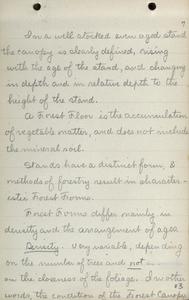 7
In a well stocked even aged stand
the canopy is clearly defined, rising
with the age of the stand, and changing
in depth and in relative depth to the
height of the stand.
A Forest Floor is the accumulation
of vegetable matter, and does not include
the mineral soil.
Stands have a distinct form, &
methods of forestry result in character-
istic Forest Forms.
Forest Forms differ mainly in
density and the arrangement of ages
Density. Very variable, depending
on the number of trees and not
on the closeness of the foliage. In other
words, the condition of the Forest Canopy
83